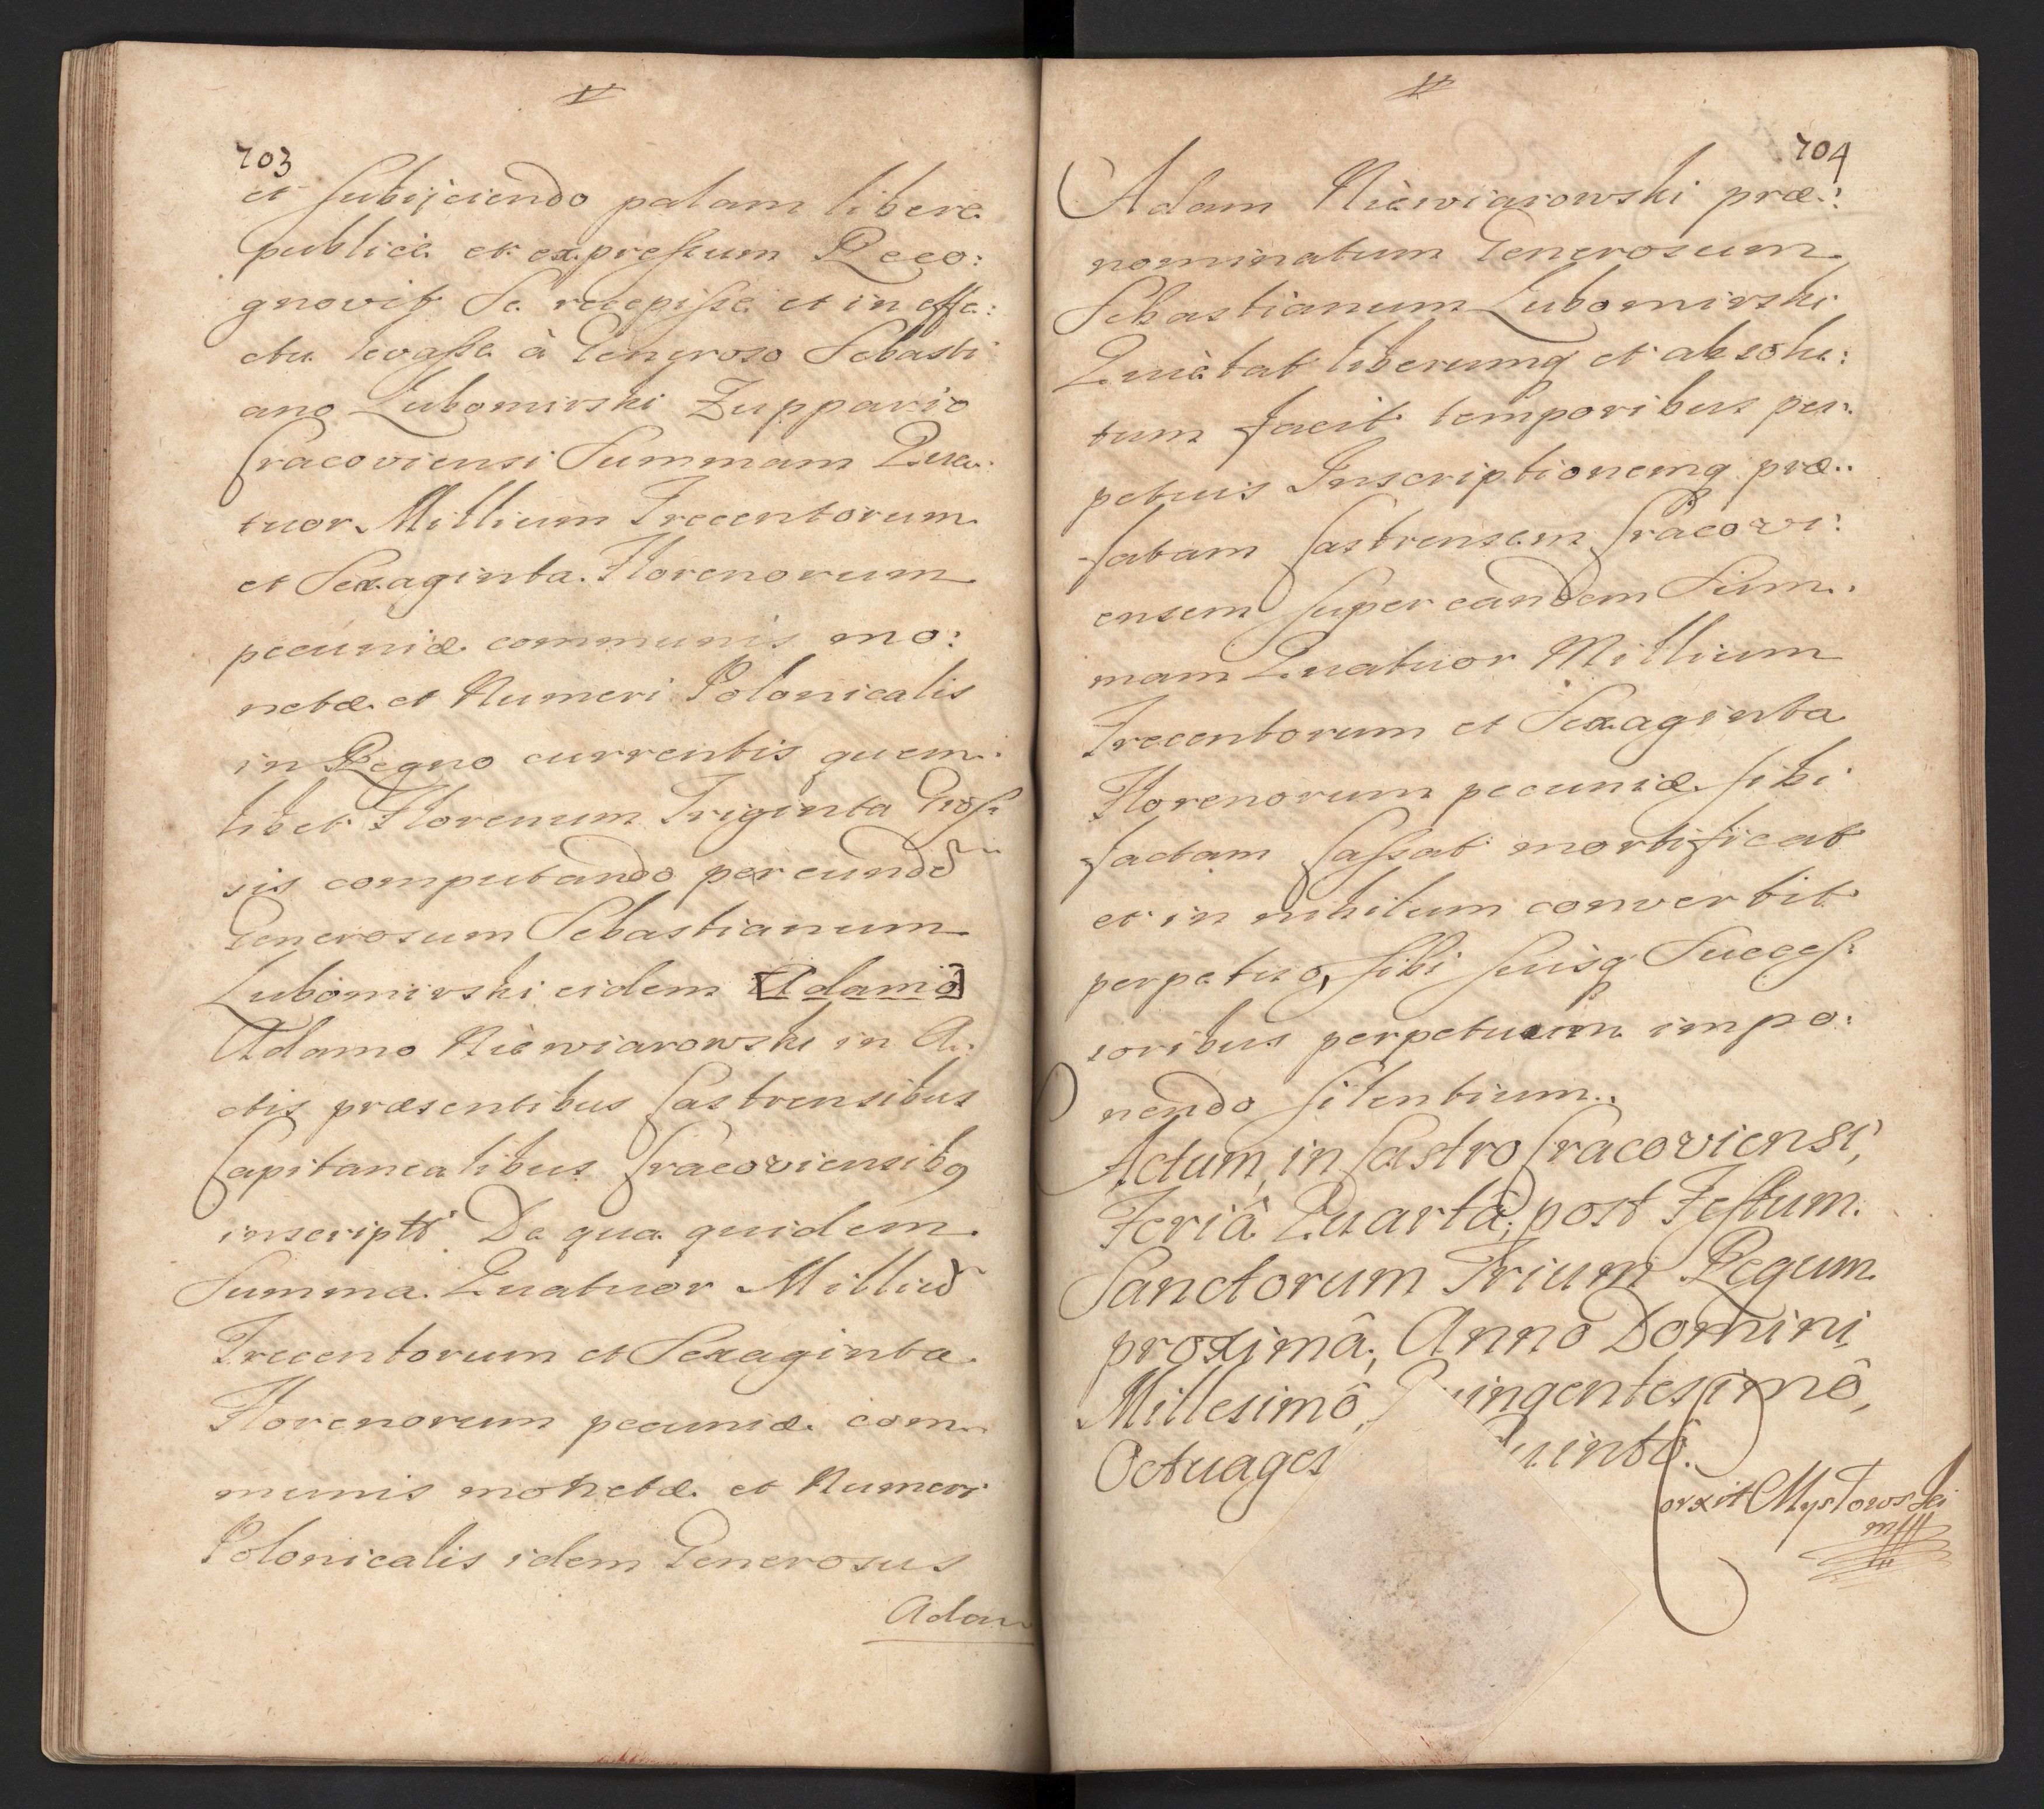 703
et subijciendo palam libere
publice et expressum Reco:
gnovit Se recepisse et in effe:
ctu levasse à Generoso Sebasti
ano Lubomirski Zuppario
Cracoviensi Summam Qua:
tuor Millium Trecentorum
et Sexaginta Florenorum
pecuniæ communis mo:
netæ et Numeri Polonicalis
in Regno currentis quem:
libet Florenum Triginta Gros:
sis computando per eunde
Generosum Sebastianum
Lubomirski eidem [Adamo]
Adamo Niewiarowski in A:
ctis præsentibus Castrensibus
Capitanealibus Cracoviensibq
inscriptã De qua quidem
Summa Quatuor Milliũ
Trecentorum et Sexaginta
Florenorum pecuniæ com:
munis monetæ et Numeri
Polonicalis idem Generosus
Adam
704
Adam Niewiarowski præ:
nominatum Generosum
Sebastianum Lubomirski
Quietat liberumq et absolu:
tum facit temporibus per:
petuis Inscriptionemq præ:
fatam Castrensem Cracovi:
ensem super eandem Sum:
mam Quatuor Millium
Trecentorum et Sexaginta
Florenorum pecuniæ sibi
factam Cassat mortificat
et in nihilum convertit
perpetuo, sibi suisq Succes:
soribus perpetuum impo:
nendo silentium.
Actum, in Castro Cracoviensi,
Feriâ Quartâ, post Festum
Sanctorum Trium Regum
proximâ, Anno Domini
Millesimô, uingentesimô,
Octuages uintô.
Corxit Mystowski
mpp